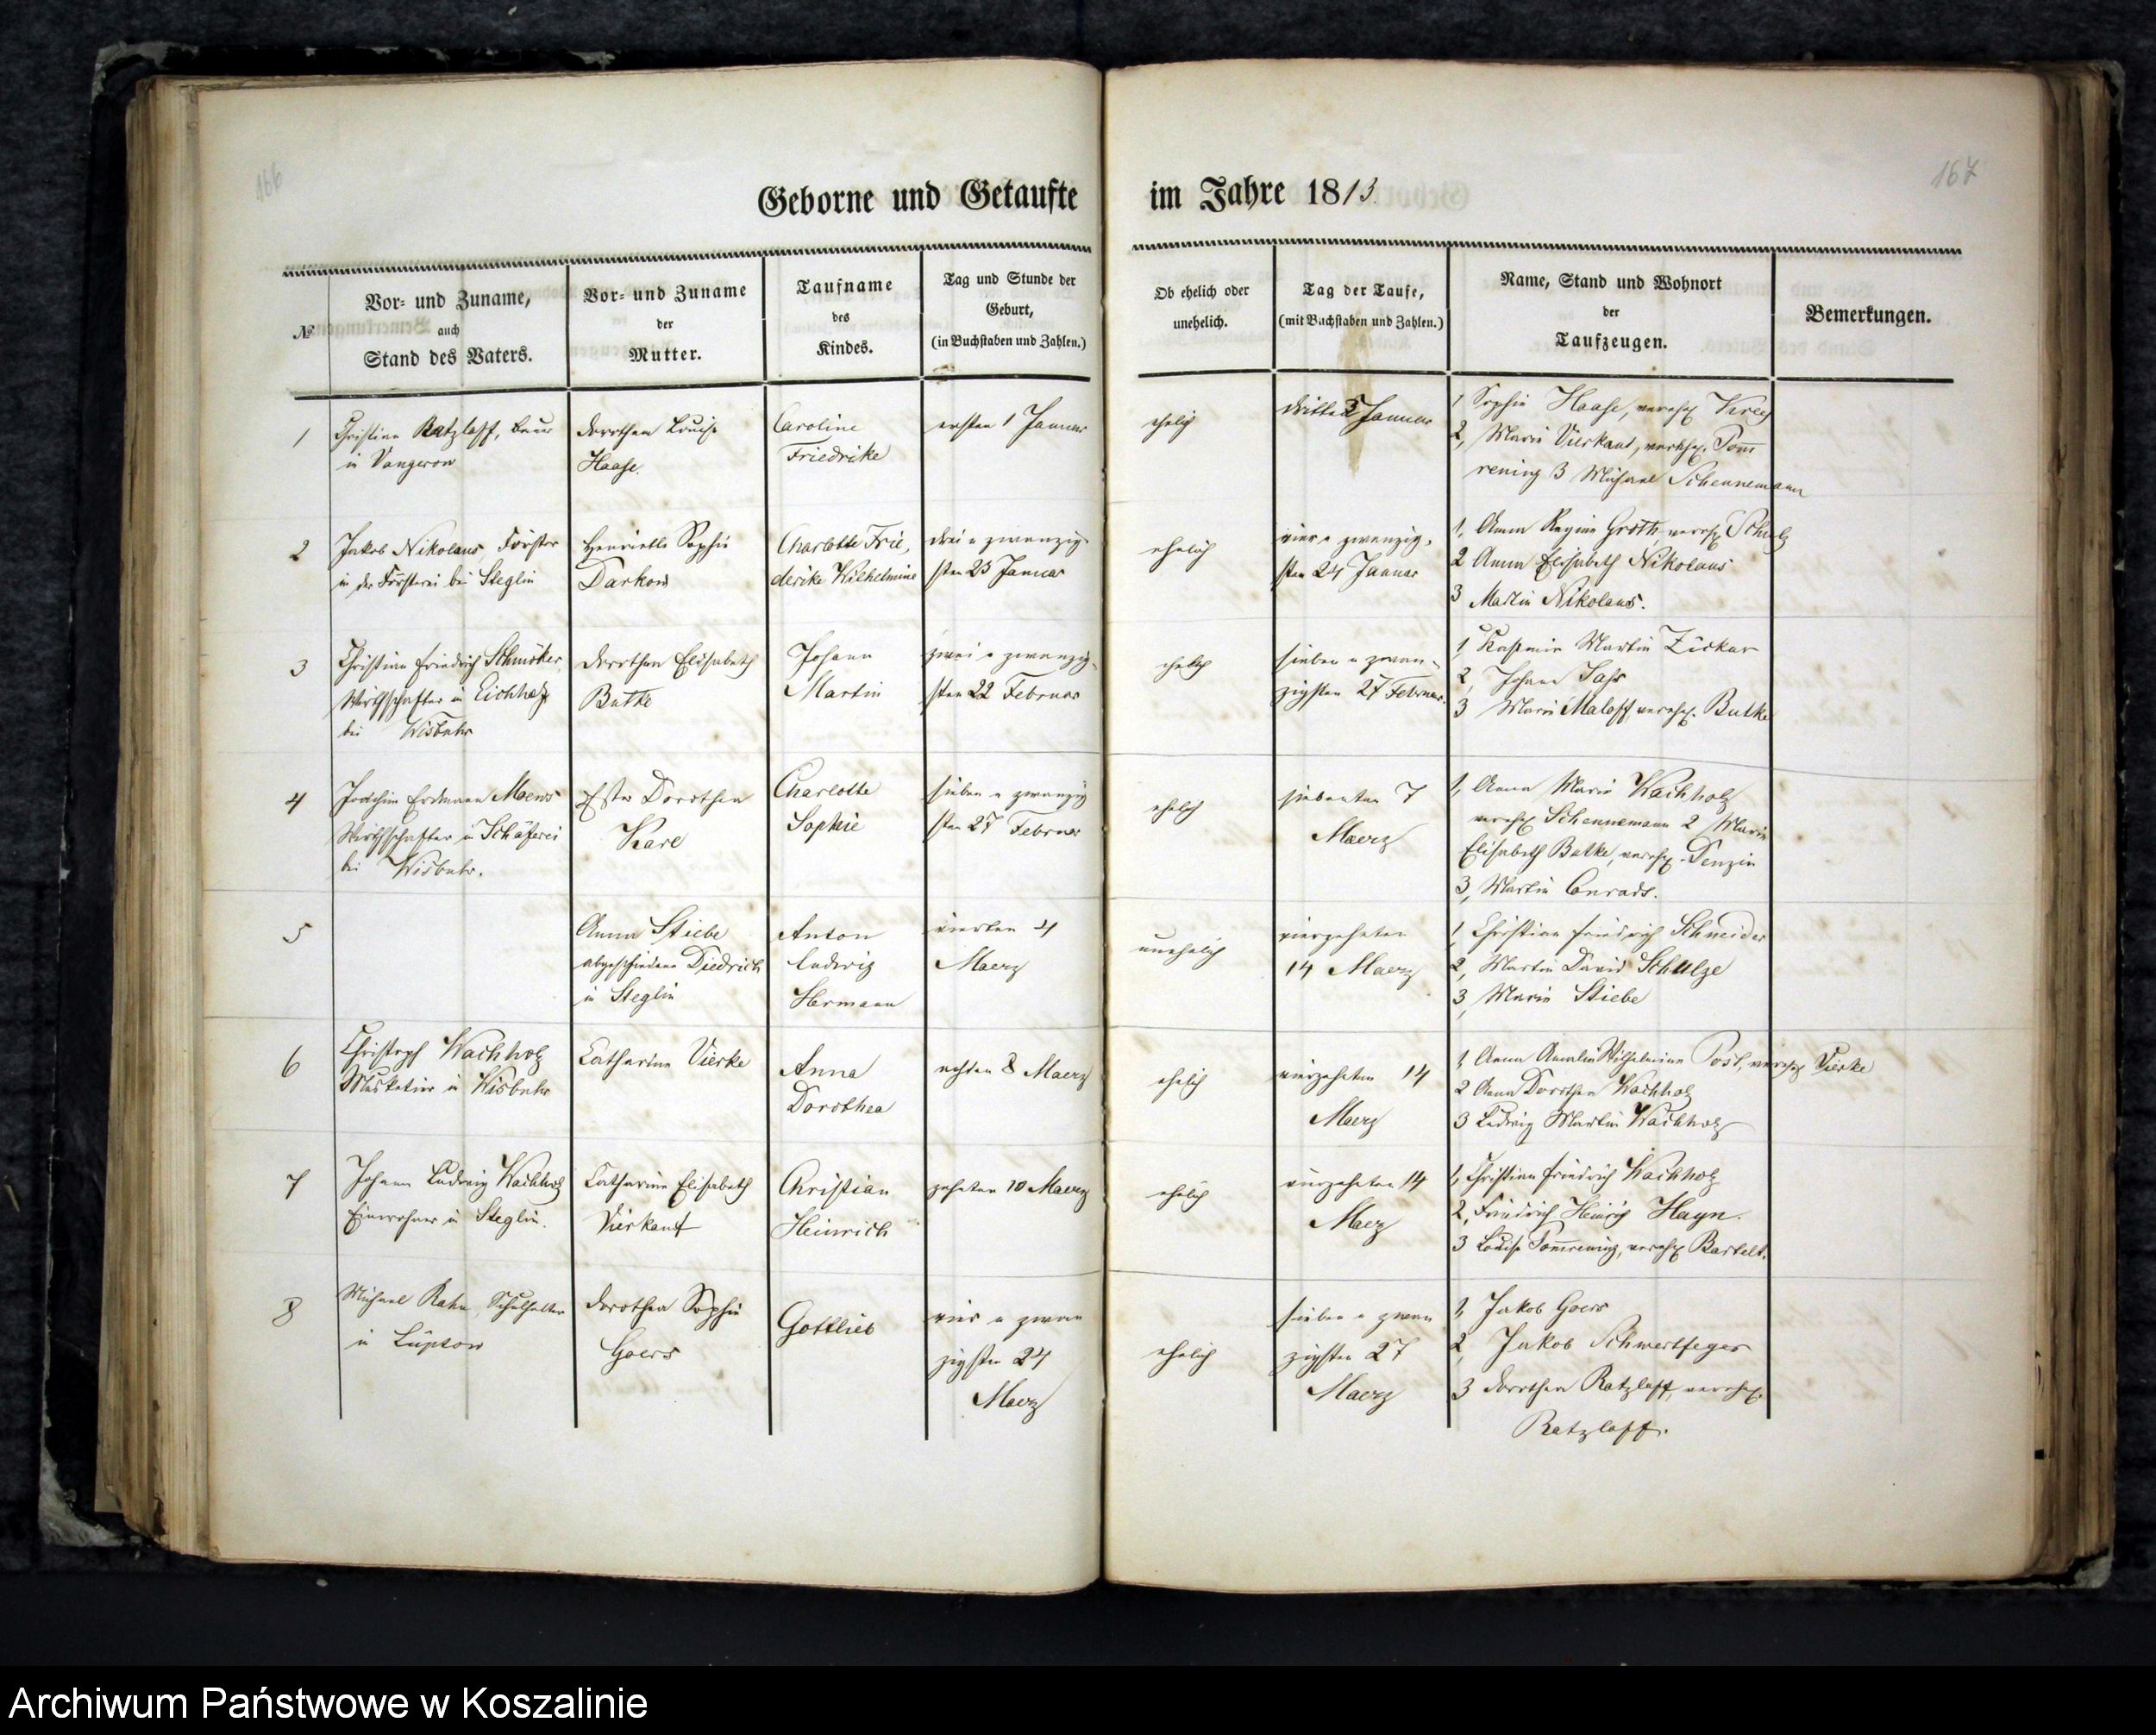 166
167
Geborne und Getaufte im Jahre 1813.
№
Vor- und Zuname,
auch
Stand des Vaters.
Vor- und Zuname
der
Mutter.
Taufname
des
Kindes.
Tag und Stunde der
Geburt,
(in Buchstaben und Zahlen.)
Ob ehelich oder
unehelich.
Tag der Taufe,
(mit Buchstaben und Zahlen.)
Name, Stand und Wohnort
der
Taufzeugen.
Bemerkungen.
1
Christian Ratzlaff, Bauer
in Vangerow
Dorothea Louise
Haase.
Caroline
Friedrike
ersten 1 Januar
ehelig
dritten 3 Januar
1 Sophie Haase, vereh
2, Marie Vierkant, vereh. Pom
rening 3 Michael Schennemann
2
Jakob Nikolaus, Förster
in der Försterei bei Steglin
Henriette Sophie
Darkow
Charlotte Frie,
derike Wilhelmine
drei u zwanzig-
sten 23 Januar
ehelich
vier u zwanzig-
sten 24 Januar
1, Anna Regine Groth vereh Schulz
2 Anna Elisabeth Nikolaus
3 Martin Nikolaus.
3
Christian Friedrich Schmöker,
Wirthschafter in Eichhof
bei Wisbuhr
Dorothea Elisabeth
Butke
Johann
Martin
zwei u zwanzig-
sten 22 Februar
ehelich
sieben u zwan-
zigsten 27 Februar.
1, Kasimir Martin Zickar
2, Johann
3 Marie Maloff, vereh. Butke
4
Joachim Erdmann Moews
Wirthschafter in Schäferei
bei Wisbuhr.
Ester Dorothea
Karl
Charlotte
Sophie
sieben u zwanzig
sten 27 Februar
ehelich
siebenten 7
Maerz
1, Anna Marie Wachholz
vereh Schennemann 2 Marie
Elisabeth Butke, vereh. Denzin
3, Martin Conrads.
5
Anna Stiebe
abgeschiedene Diedrich
in Steglin
Anton
Ludwig
Hermann
vierten 4
Maerz
unehelich
vierzehnten
14 Maerz
1 Christian Friedrich Schneider
2, Martin David Schulze
3, Marie Stiebe
6
Christoph Wachholz
Musketier in Wisbuhr
Catharina Vierke
Anna
Dorothea
achten 8 Maerz
ehelich
vierzehnten 14
Maerz
1, Anna Amalie Wilhelmine Post, vereh Vierke
2 Anna Dorothea Wachholz
3 Ludwig Martin Wachholz
7
Johann Ludwig Wachholz
Einwohner in Steglin.
Catharine Elisabeth
Vierkant
Christian
Heinrich
zehnten 10 Maerz
ehelich
vierzehnten 14
Maerz
1, Christian Friedrich Wachholz
2, Friedrich Heinrich Hayn.
3 Louise Pommrening, vereh Bartelt.
8
Michael Rahn, Schulhalter
in Lüptow
Dorothea Sophie
Goers
Gottlieb
vier u zwan
zigsten 24
Maerz
ehelich
sieben u zwan
zigsten 27
Maerz
1, Jakob Goers
2, Jakob Schwertfeger
3 Dorothea Ratzlaff, vereh.
Ratzlaff.
Archiwum Państwowe w Koszalinie